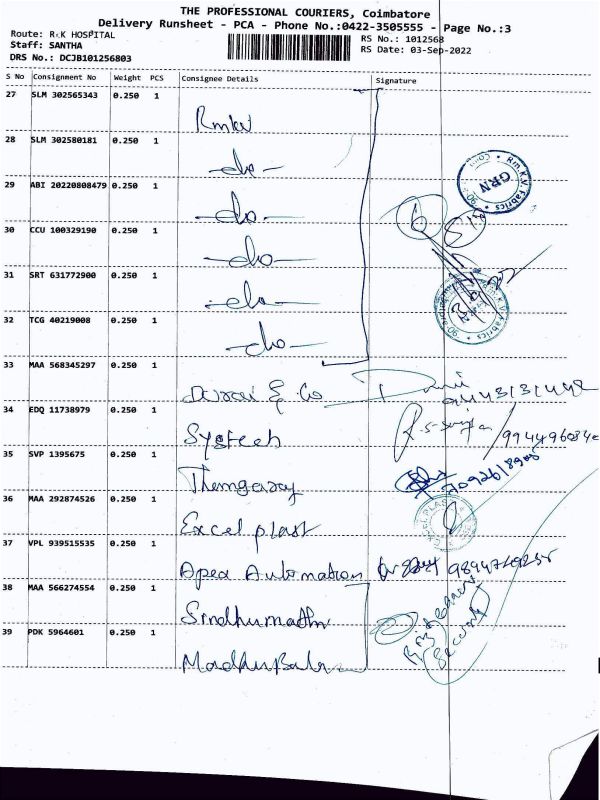 THE PROFESSIONAL COURIERS, Coimbatore
Delivery Runsheet - PCA - Phone No.:0422-3505555 - Page No.:3
Route: R.K HOSPITAL
RS No.: 1012568
Staff: SANTHA
RS Date: 03-Sep-2022
DRS No.: DCJB101256803
S No Consignment No Weight PCS Consignee Details Signature
27 SLM 302565343 0.250 1
Rmkv
28 SLM 302580181 0.250 1
-do-
29 ABI 20220808479 0.250 1
-do-
30 CCU 100329190 0.250 1
-do-
31 SRT 631772900 0.250 1
-do-
32 TCG 40219008 0.250 1
-do-
33 MAA 568345297 0.250 1
Durai & Co
34 EDQ 11738979 0.250 1
Systech
35 SVP 1395675 0.250 1
36 MAA 292874526 0.250 1
Excel plast
37 VPL 939515535 0.250 1
Apex Automation
38 MAA 566274554 0.250 1
Sindhumathi
39 PDK 5964601 0.250 1
MadhuBala
Rm.K.V. Fabrics
GRN
Rm.K.V. Fabrics
EXCEL PLAST
Security